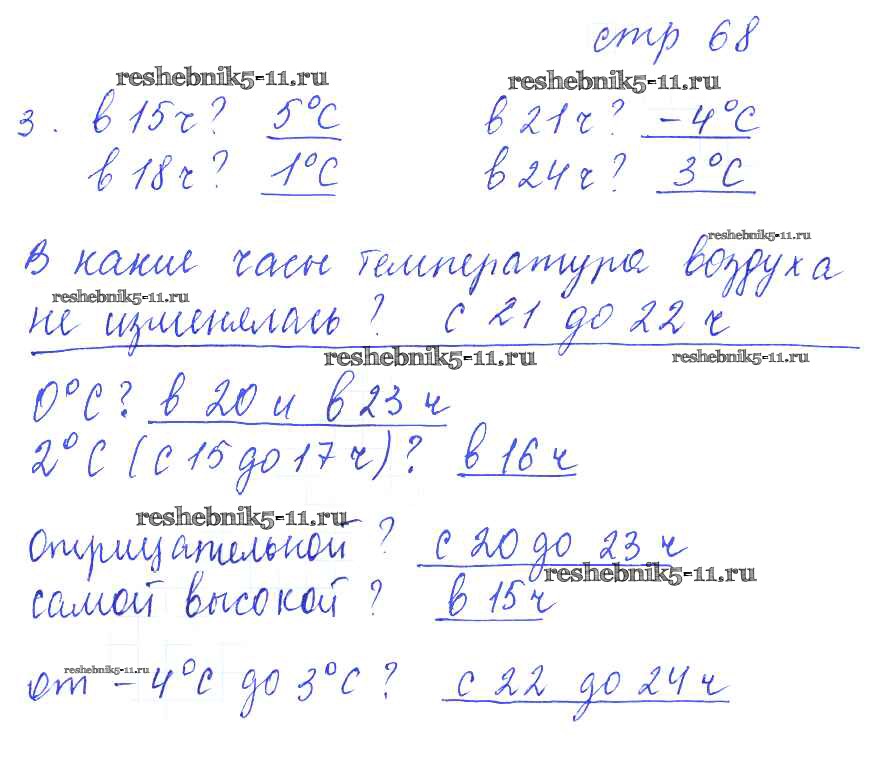 стр 68
reshebnik5-11.ru reshebnik5-11.ru
3. в 15 ч? 5°С в 21 ч? -4°С
в 18 ч? 1°С в 24 ч? 3°С
reshebnik5-11.ru
В какие часы температура воздуха
reshebnik5-11.ru
не изменялась? с 21 до 22 ч
reshebnik5-11.ru reshebnik5-11.ru
0°С? в 20 и в 23 ч
2°С (с 15 до 17 ч)? в 16 ч
reshebnik5-11.ru
отрицательной? с 20 до 23 ч
reshebnik5-11.ru
самой высокой? в 15 ч
reshebnik5-11.ru
от -4°С до 3°С? с 22 до 24 ч